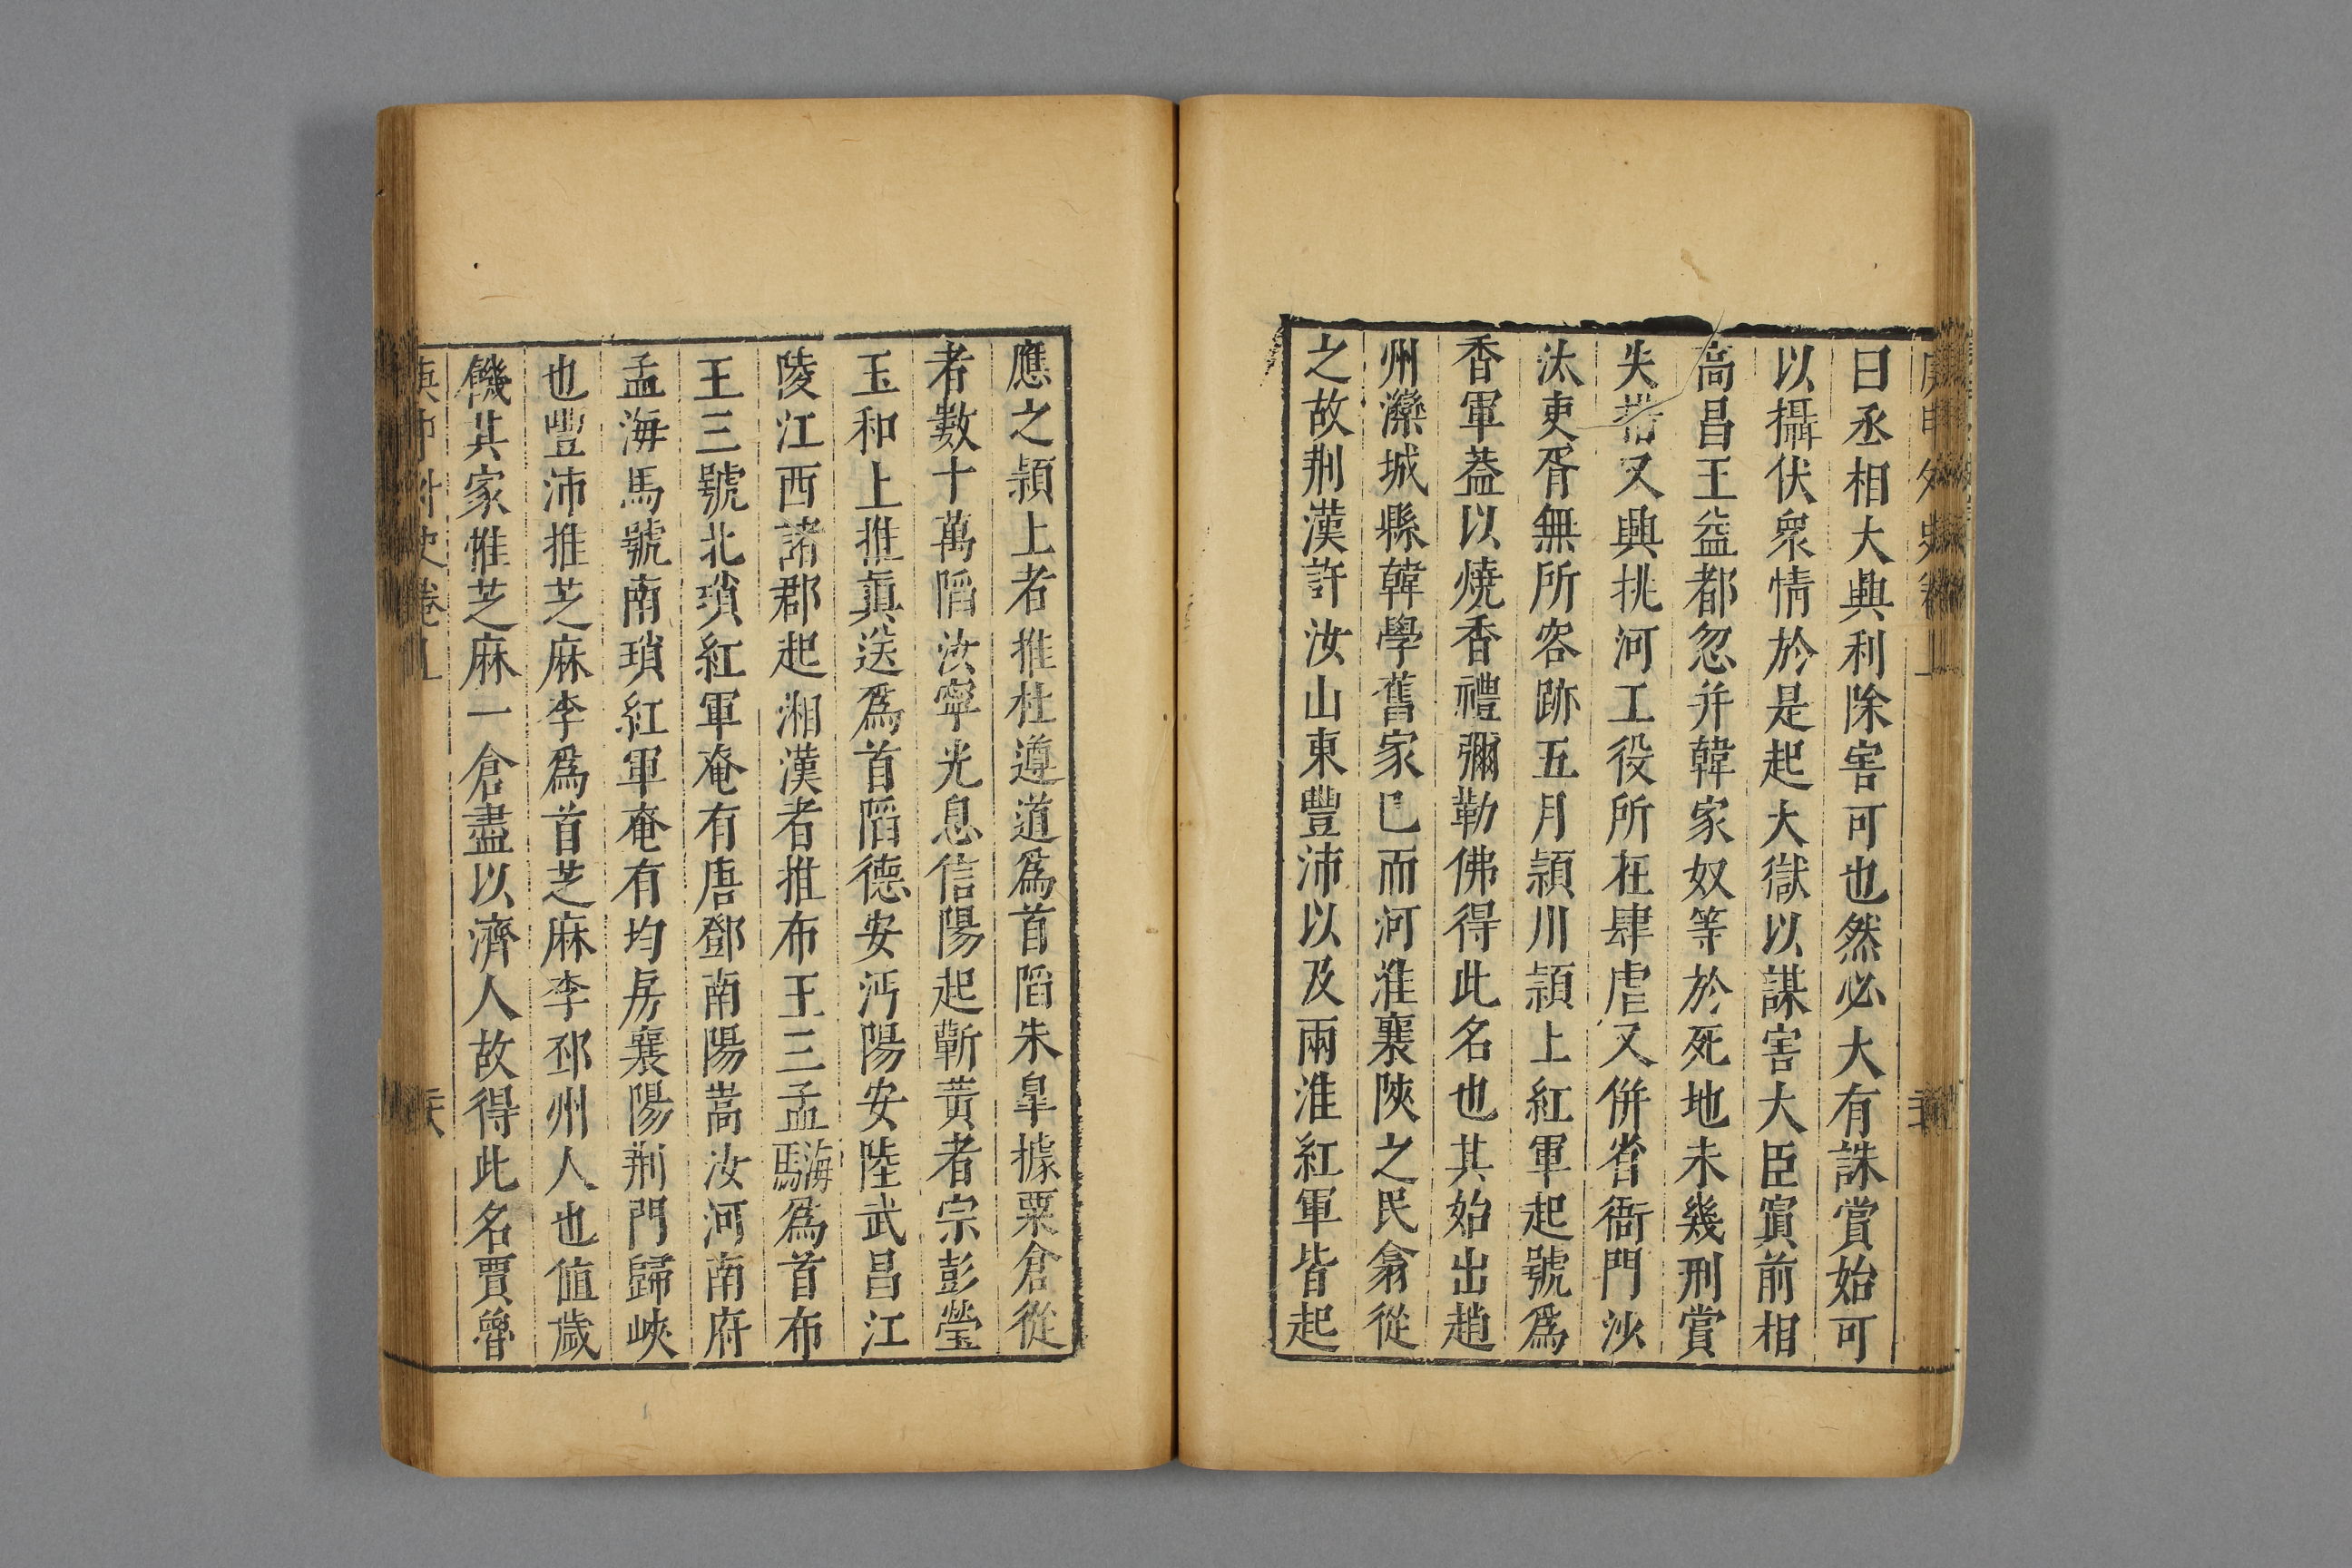 庚申外史卷上
曰丞相大興利除害可也然必大有誅賞始可
以攝伏衆情於是起大獄以謀害大臣寘前相
高昌王益都忽并韓家奴等於死地未幾刑賞
失措又興挑河工役所在肆虐又併省衙門沙
汰吏胥無所容跡五月頴川頴上紅軍起號為
香軍葢以燒香禮彌勒佛得此名也其始出趙
州灤城縣韓學舊家已而河淮襄陝之民翕從
之故荆漢許汝山東豐沛以及兩淮紅軍皆起
應之頴上者推杜遵道爲首䧟朱臯據粟倉從
者數十萬䧟汝寧光息信陽起蘄黄者宗彭瑩
玉和上推眞逸爲首䧟德安沔陽安陸武昌江
陵江西諸郡起湘漢者推布王三孟海馬爲首布
王三號北瑣紅軍奄有唐鄧南陽嵩汝河南府
孟海馬號南瑣紅軍奄有均房襄陽荆門歸峽
也豐沛推芝麻李爲首芝麻李邳州人也值歲
饑其家惟芝麻一倉盡以濟人故得此名賈魯
庚申外史卷上